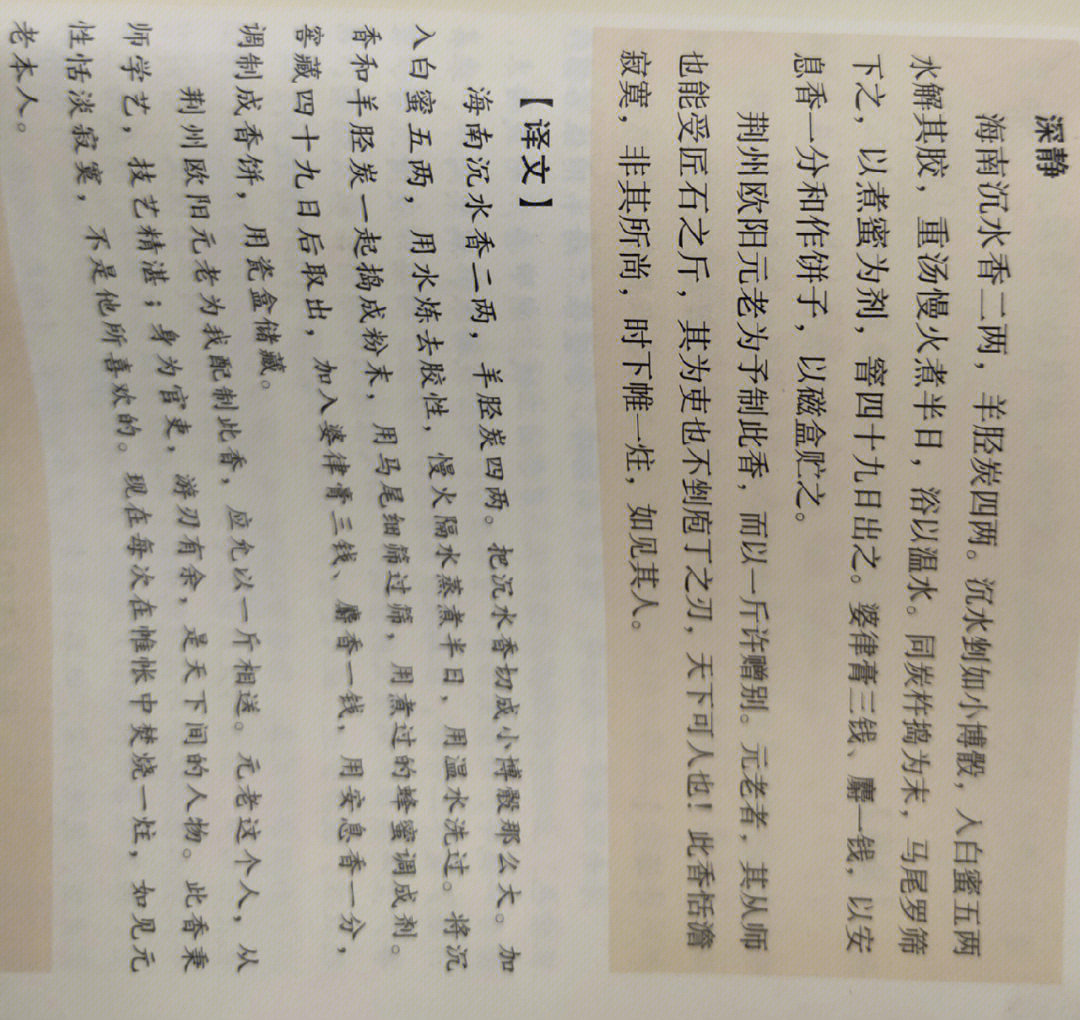 深静
海南沉水香二两，羊胫炭四两。沉水剉如小博骰，入白蜜五两
水解其胶，重汤慢火煮半日，浴以温水。同炭杵捣为末，马尾罗筛
下之，以煮蜜为剂，窨四十九日出之。婆律膏三钱、麝一钱，以安
息香一分和作饼子，以磁盒贮之。
荆州欧阳元老为予制此香，而以一斤许赠别。元老者，其从师
也能受匠石之斤，其为吏也不剉庖丁之刃，天下可人也！此香恬澹
寂寞，非其所尚，时下帷一炷，如见其人。
【译文】
海南沉水香二两，羊胫炭四两。把沉水香切成小博骰那么大。加
入白蜜五两，用水炼去胶性，慢火隔水蒸煮半日，用温水洗过。将沉
香和羊胫炭一起捣成粉末，用马尾细筛过筛，用煮过的蜂蜜调成剂。
窖藏四十九日后取出，加入婆律膏三钱、麝香一钱，用安息香一分，
调制成香饼，用瓷盒储藏。
荆州欧阳元老为我配制此香，应允以一斤相送。元老这个人，从
师学艺，技艺精湛；身为官吏，游刃有余，是天下间的人物。此香秉
性恬淡寂寞，不是他所喜欢的。现在每次在帷帐中焚烧一炷，如见元
老本人。